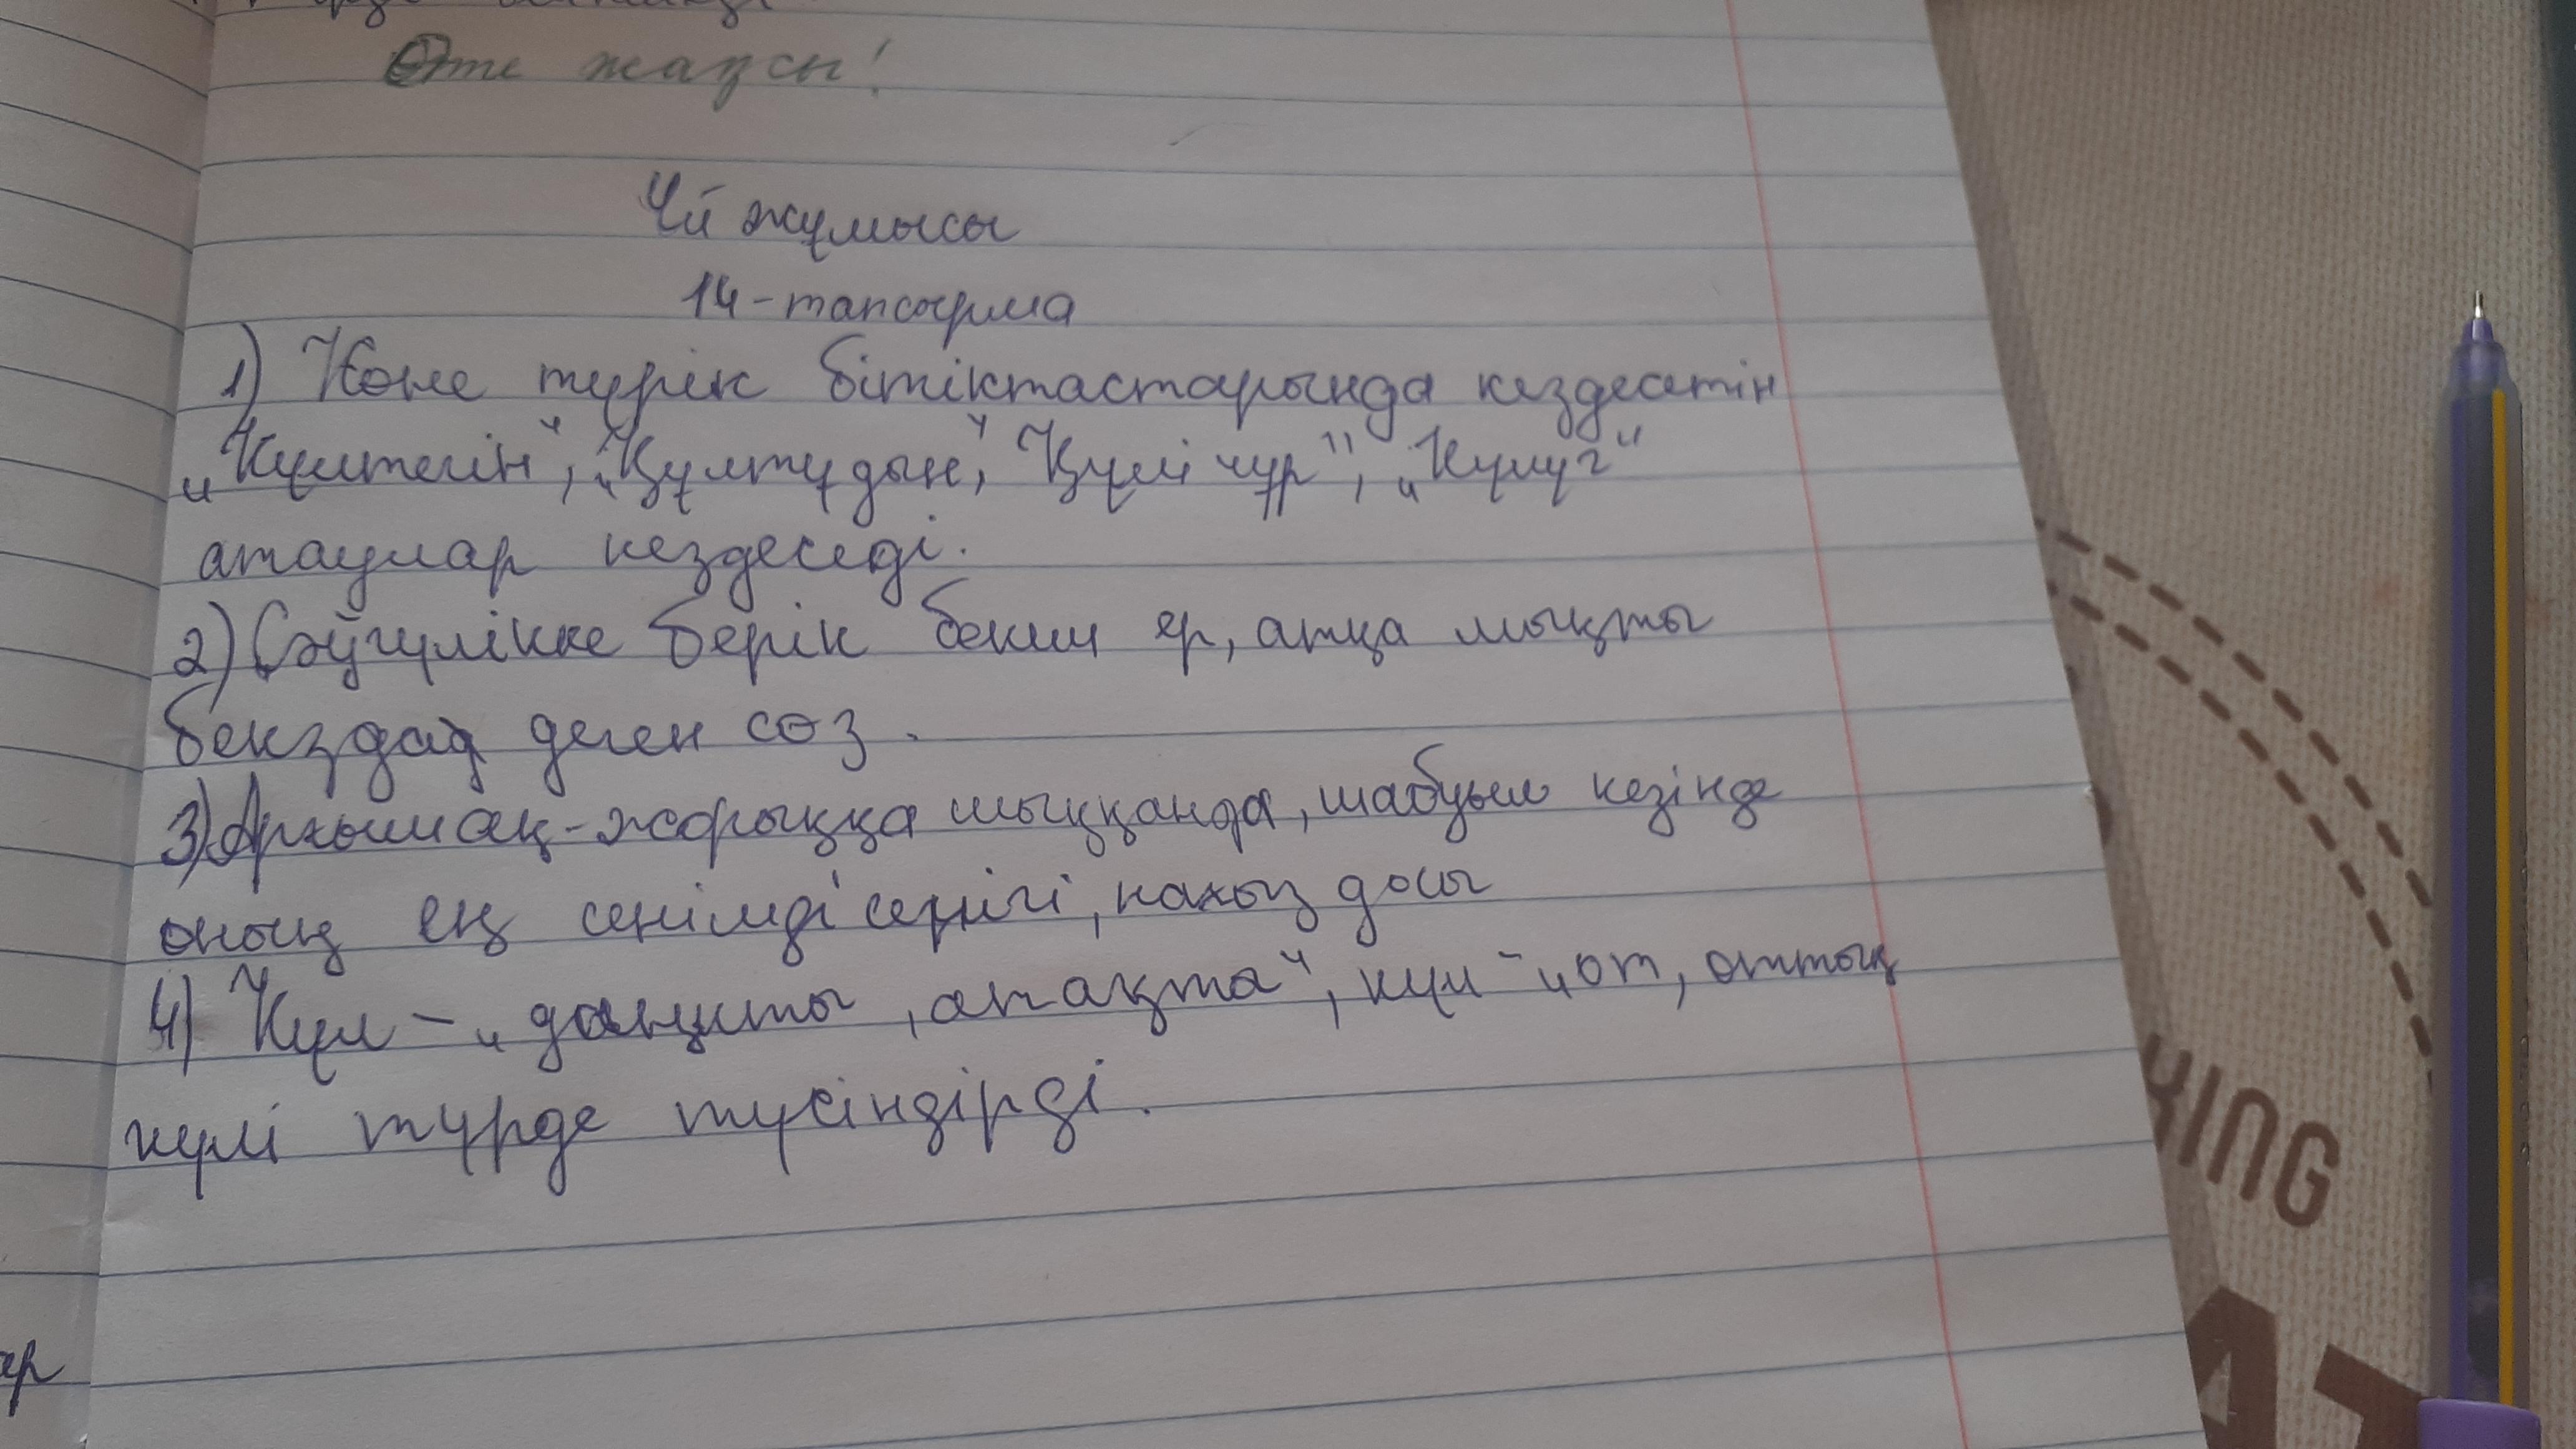 Өте жақсы!
Үй жұмысы
14-тапсырма
1) Көне түрік бітіктастарында кездесетін
„Күлтегін", „Құлтұдын", Күлі чұр", „Кулуг"
атаулар кездеседі.
2) Сәйгүлікке берік бекіш ер, атқа мықты
бекздад деген сөз.
3) Арғымақ-жорыққа шыққанда, шабуыл кезінде
оның ең сенімді серігі, нағыз досы
4) Күл - „даңқты, атақта", күл - „от, оттың
күлі түрде түсіндірді.
ер
KING
AT